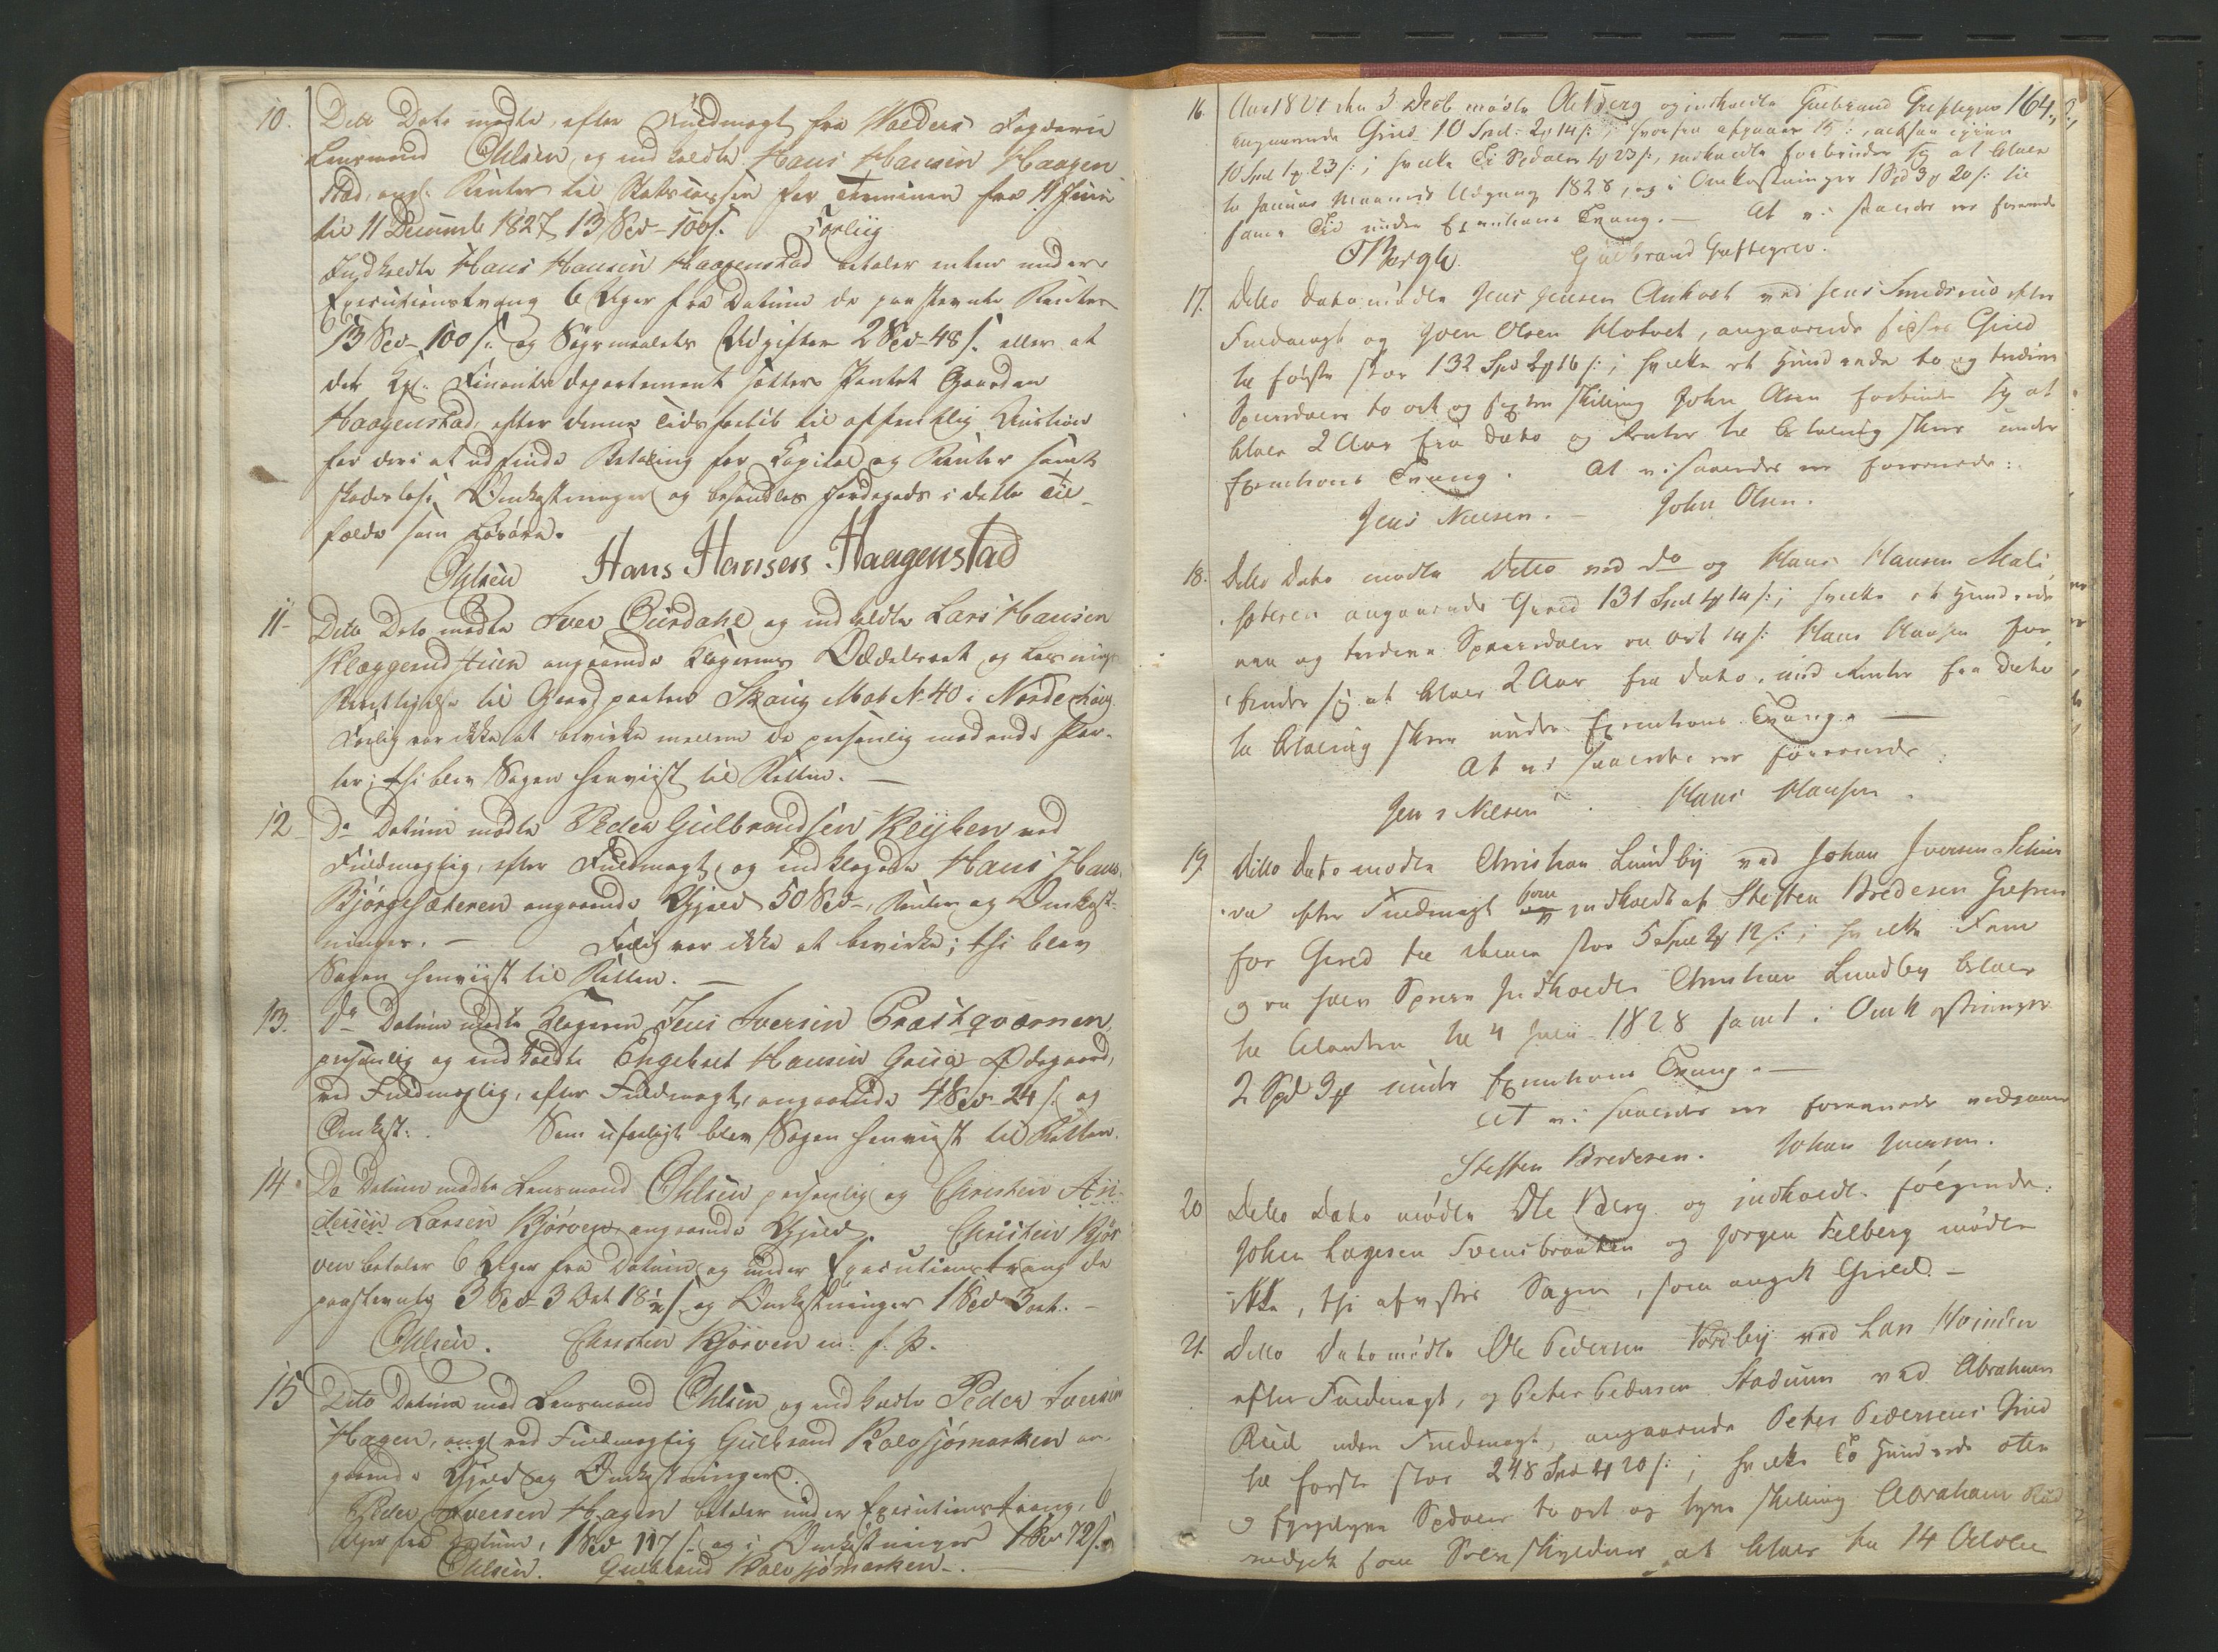 10. Dito Dato mødte, efter Fuldmagt fra Valders Fogderie
Lensmand Ohlsen, og indkaldte Hans Hansen Haagen
stad, angl. Renter til Statscassen for Terminen fra 11 Juni
til 11 Decembr 1827, 13 Spd - 100 s. Forliig
Indkaldte Hans Hansen Haagenstad betaler enten under
Executionstvang 6 Uger fra Datum de paastevnte Renter
13 Spd - 100 s. og Søgsmaalets Udgifter 2 Spd - 48 s. eller at
det Kgl. Finantsdepartement sætter Pantet Gaarden
Haagenstad, efter denne Tids forløb til offentlig Auction
for deri at udfinde Betaling for Kapital og Renter samt
skadesløse Omkostninger og behandles Jordegods i dette Til-
fælde som Løsøre.
Ohlsen Hans Hansen Haagenstad
11- Dito Dato mødte Iver Ourdahl og indkaldte Lars Hansen
Klæggerudstuen angaaende Klagerens Oddelsret og Løsnings
Berettigelse til Gaardparten Skoug Mat No 40 i Norderhoug
Forlig var ikke at bevirke mellem de personlig mødende Par-
ter; thi blev Sagen henviist til Retten. -
12 Do Datum mødte Peder Gulbrandsen Klyken ved
Fuldmægtig, efter Fuldmagt, og indklagede Hans Hans.
Bjørgesæteren angaaende Gjæld 50 Spd -, Renter og Omkost-
ninger. - Forlig var ikke at bevirke; thi blev
Sagen henviist til Retten. -
13. Do Datum mødte Klageren Jens Iversen Præstqværnen
personlig og indkaldte Engebret Hansen Ødegaard,
ved Fuldmægtig, efter Fuldmagt, angaaende 4 Spd - 24 s. og
Omkost: Som uforligt blev Sagen henviist til Retten.
14. Do Datum mødte Lensmand Ohlsen personlig og Christen An-
dersen Larsen Kjørven angaaende Gjæld. Christen Kjør
ven betaler 6 Uger fra Datum og under Executionstvang de
paastevnte 3 Spd - 3 Ort 18 ½ s. og Omkostninger 1 Spd 3 ort. -
Ohlsen. Christen Kjørven m. f. P.
15 Dito Datum mød Lensmand Ohlsen og indkaldte Peder Iversen
Hagen, ved Fuldmægtig Gulbrand Kalvsjømarken an-
gaaende Gjæld og Omkostninger.
Peder Iversen Hagen betaler under Executionstvang, 6
Uger fra Datum, 1 Spd 117 s. og i Omkostninger 1 Spd 72 s.
Ohlsen. Gulbrand Kalvsjømarken -.
164.
16. Aar 1827 den 3 Decb mødte Ole Berg og indkaldte Gulbrand Greftegrev
angaaende Gield 10 Spd: 2 # 14 s: hvorfra afgaaer 15 s:, altsaa igien
10 Spd 1 # 23 s:; hvilke Ti Spdaler 1 # 23 s:, indkaldte forbinder sig at betale
to Januar Maaneds Udgang 1828, og i Omkostninger 1 Spd 3 # 20 s: til
samme Tid under Executions Tvang. - At vi saaledes ere forenede
O Bergh. Gulbrand Greftegrev.
17. Ditto Dato mødte Jens Jensen ved Jens Smedsrud efter
Fuldmagt og Joen Olsen Klotvet, angaaende Gield
til første stor 132 Spd 2 # 16 s:; hvilke et Hundrede to og tredive
Speciedaler to ort og sexten Skiling John Olsen forbinder sig at
betale 2 Aar fra dato og Renter til betaling skeer under
Executions Tvang. At vi saaledes ere forenede:
Jens Nilsen. - John Olsen.
18. Ditto Dato mødte Ditto ved do og Hans Hansen Meli
sæteren angaaende Gield 131 Spd 1 # 14 s:; hvilke et Hundrede
een og tredive Speciedaler en ort 14 s: Hans Hansen for
binder sig at betale 2 Aar fra dato, med Renter fra dato
til betaling skeer under Executions Tvang. -
At vi saaledes ere forenede
Jens Nilsen. Hans Hansen.
19. Ditto Dato mødte Christian Lundby ved Johan Iversen
efter Fuldmagt som indkaldt af Steffen Bredesen Grefsru
for Gield til denne stor 5 Spd 2 # 12 s:; hvilke Fem
og en halv Specie Indkaldte Christian Lundby betaler
til Citanten til 4 Juli 1828 samt i Omkostninger
2 Spd 3 # under Executions Tvang. -
At vi saaledes ere forenede vedgaaes
Steffen Bredesen. Johan Iversen.
20 Ditto Dato mødte Ole Berg og indkaldte følgende:
Johan Lagesen Svensbraaten og Jørgen Felberg mødte
ikke, thi afvistes Sagen, som angik Gield. -
21. Ditto Dato mødte Ole Pedersen Nordby ved Lars
efter Fuldmagt, og Peter Pedersen Stadum ved Abraham
Rud uden Fuldmagt, angaaende Peter Pedersens Gield
til første stor 248 Spd 2 # 20 s:; hvilke To Hundrede otte
og fyrgetyve Spdaler to ort og tyve Skiling Abraham Rud
vedgik som Selvskyldner at betale til 14 October